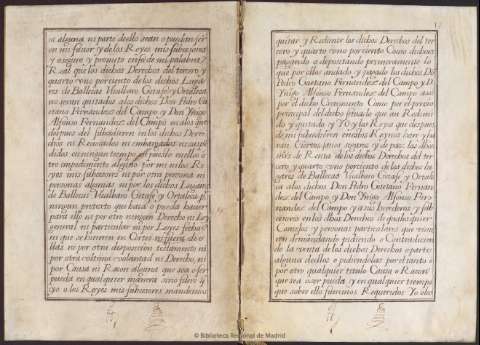 ni alguna ni parte dellos sean o puedan ser
en mi favor y de los Reyes mis subcesores
y aseguro y prometo en fee de mi palabra
Real que los dichos Derechos del tercero
y quarto uno por ciento de los dichos Lugares
de Ballecas Vicalbaro Getafe y Ortaleza
no seran quitados a los dichos Don Pedro
Fernandez del Campo y Don Iñigo
Alfonso Fernandez del Campo ni a los que
despues del subcedieren en los dichos Derechos
ni Revocados ni embargados ni
en ningun tiempo ni puesto en ellos
impedimiento alguno por mi ni los Reyes
mis subcesores ni por otra persona ni
personas algunas ni por los dichos Lugares
de Ballecas Vicalbaro Getafe y Ortaleza
ningun pretexto que haya o pueda haver
para ello ni por otro ningun Derecho ni Ley
general ni particular ni por Leyes fechas
ni que se hicieren en Cortes ni fuera de
ellas ni por otra disposicion testamento ni
por otra ultima voluntad ni Derecho ni
por Causa ni Raçon alguna que sea o ser
pueda en qualquier manera
yo o los Reyes mis subcesores mandemos
quitar y Redimir los dichos Derechos del tercero
y quarto uno por ciento Como dicho es
pagando o depositando primeramente lo
que por ellos an dado y pagado los dichos Don
Pedro Fernandez del Campo y Don
Iñigo Alfonso Fernandez del Campo
por el dicho Crecimiento Como por el precio
principal del dicho situado que an Redimido
y quitado y Yo y los Reyes que despues
de mi subcedieren en estos Reynos
Ciertos seguros y de paz los dichos
de Renta de los dichos Derechos del tercero
y quarto uno por ciento de los dichos Lugares
de Ballecas Vicalbaro Getafe y Ortaleza
a los dichos Don Pedro Fernandez
del Campo y Don Iñigo Alfonso Fernandez
del Campo y a sus herederos y subcesores
en los dichos Derechos de qualesquier
Concejos y personas particulares que
demandando pidiendo o Contradiciendo
la venta de los dichos Derechos o parte
alguna dellos o pidiendolos por el tanto o
por otro qualquier titulo Causa o Raçon
que sea o ser pueda y en qualquier tiempo
que sobre ello fueremos Requeridos Yo o los
© Biblioteca Regional de Madrid